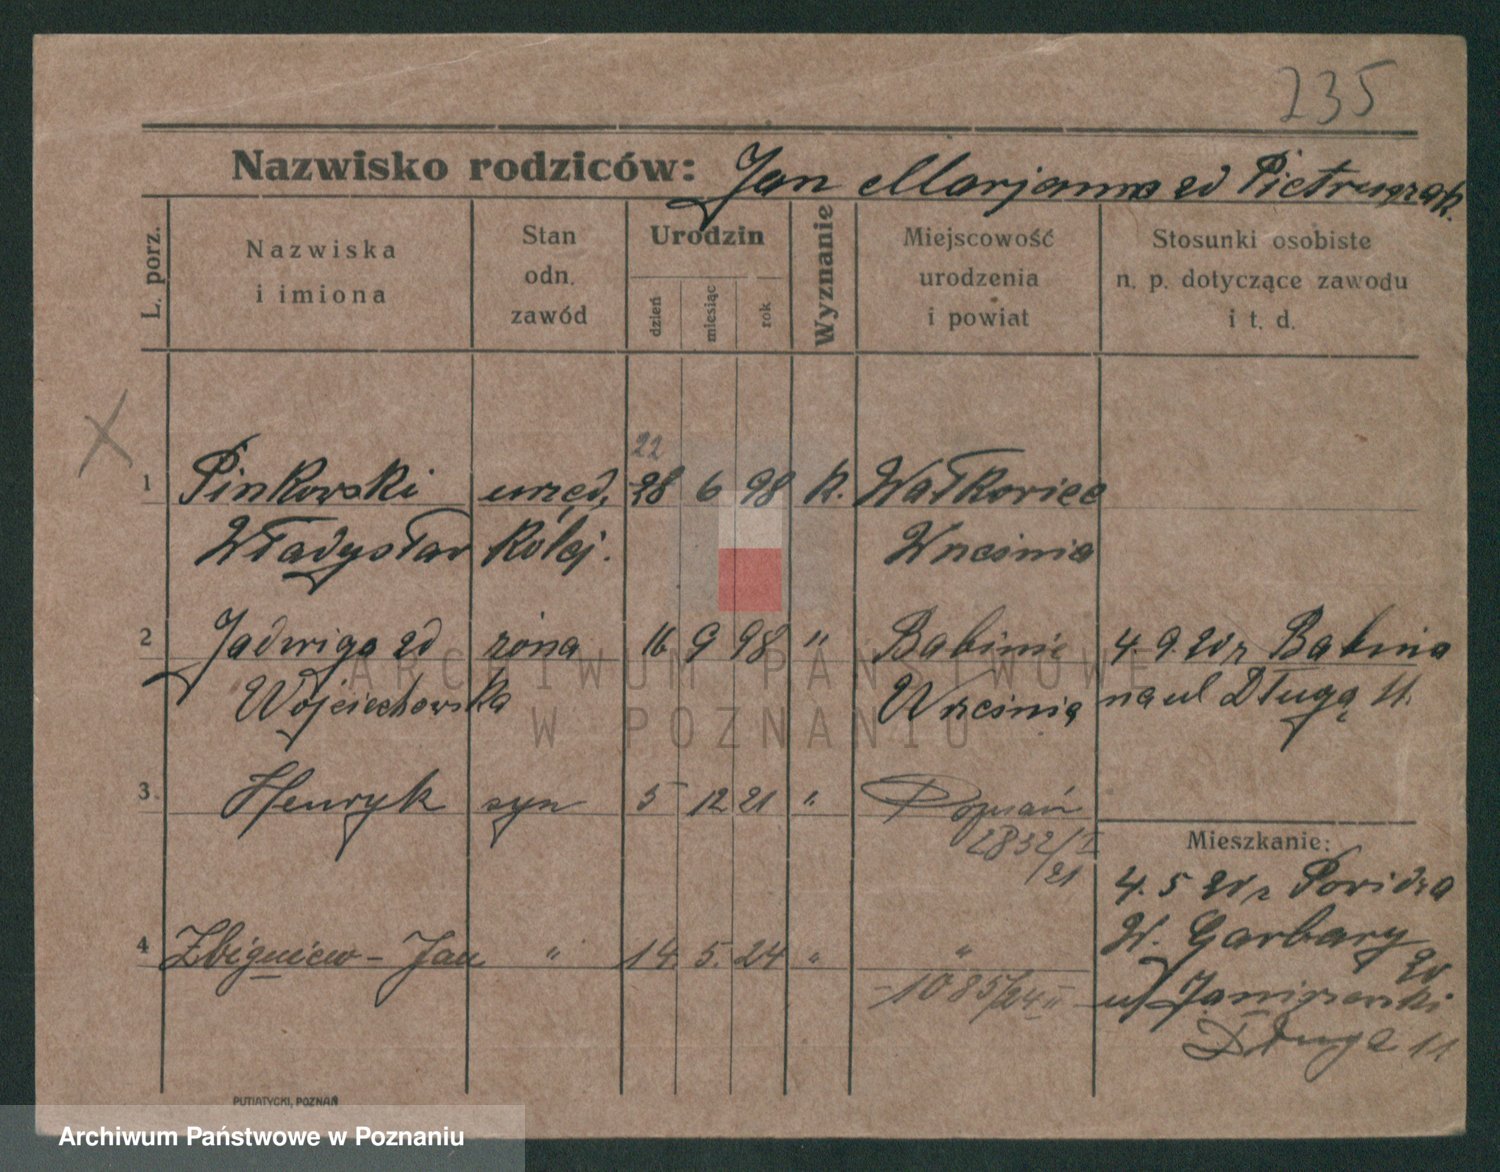 235
Nazwisko rodziców: Jan Marjanna zd Pietruszak.
L. porz.
Nazwiska i imiona
Stan odn. zawód
Urodzin
dzień
miesiąc
rok
Wyznanie
Miejscowość urodzenia i powiat
Stosunki osobiste n. p. dotyczące zawodu i t. d.
X
22
1 Pinkowski urzęd. 28 6 98 k. Wałkowice
Władysław kolej. Września
2 Jadwiga zd żona 16 9 98 " Babinie 4. 9. 20 z Babina
Wojciechowska Września na ul Długą 11.
3. Henryk syn 5 12 21 " Poznań
2832/I
/21
Mieszkanie:
4. 5 20 z
W. Garbary
4 Zbigniew - Jan " 14. 5. 24 " "
20
-1085/24 II ul
Długa 11
PUTIATYCKI, POZNAŃ
ARCHIWUM PAŃSTWOWE
W POZNANIU
Archiwum Państwowe w Poznaniu